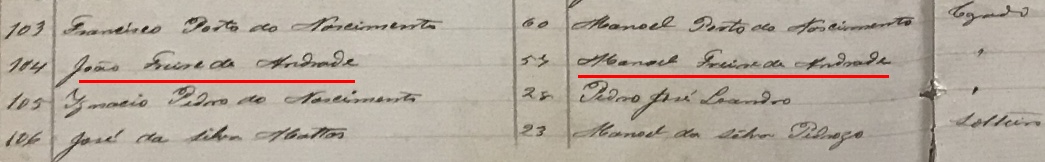 103 Francisco Porto do Nascimento 60 Manoel Porto do Nascimento Cazado
104 João Freire de Andrade 54 Manoel Freire de Andrade "
105 Ignacio Pedro do Nascimento 28 Pedro José Leandro "
106 José da Silva Mattos 23 Manoel da Silva Pedroza Solteiro